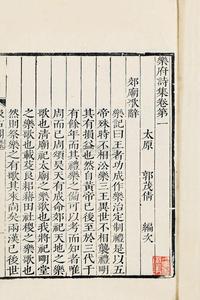 樂府詩集卷第一
太原 郭茂倩 編次
郊廟歌辭
樂記曰王者功成作樂治定制禮是以五
帝殊時不相沿樂三王異世不相襲禮明
其有損益也然自黃帝已後至於三代千
有餘年而其禮樂之備可以考而知者唯
周而已周頌昊天有成命郊祀天地之樂
歌也清廟祀太廟之樂歌也我將祀明堂
之樂歌也載芟良耜藉田社稷之樂歌也
然則祭樂之有歌其來尚矣兩漢已後世